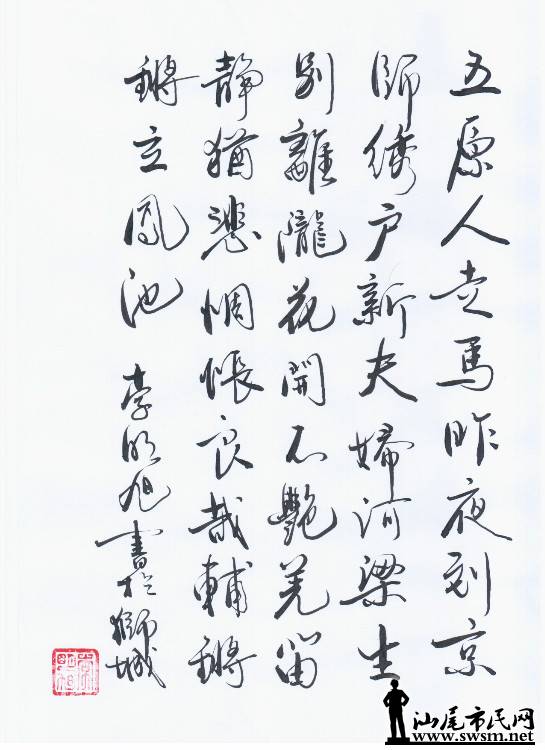 五原人走馬昨夜到京
師绣户新夫婦河梁生
别離隴花開不艷羌笛
静猶悲惆悵良哉輔鏘
鏘立鳳池
李明旭書於獅城
汕尾市民网
www.swsm.net